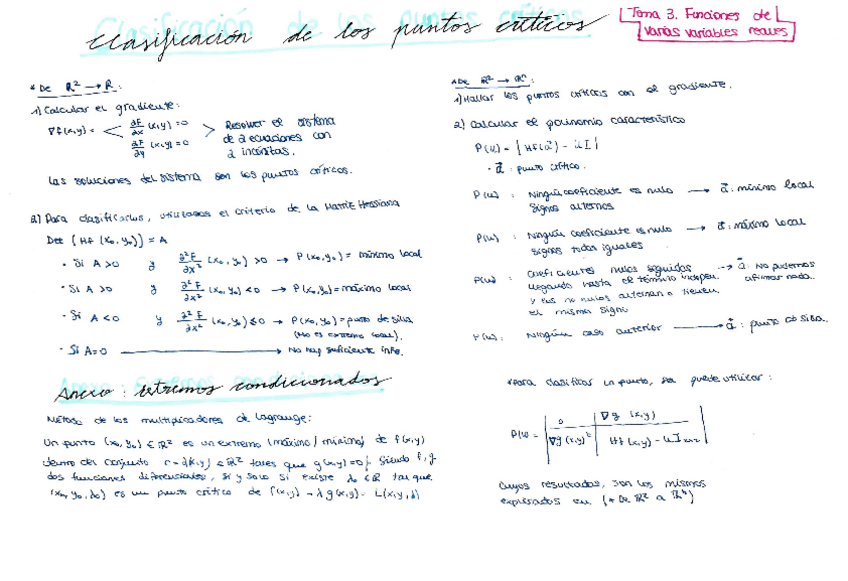 Clasificación de los puntos críticos
Tema 3. Funciones de
varias variables reales
* De R² → R:
1) Calcular el gradiente:
∇f(x,y) = < ∂F/∂x (x,y) = 0
∂F/∂y (x,y) = 0 > Resolver el sistema
de 2 ecuaciones con
2 incógnitas.
Las soluciones del sistema son los puntos críticos.
2) Para clasificarlos, utilizamos el criterio de la Matriz Hessiana
Det (Hf (x₀, y₀)) = A
· Si A>0 y ∂²F/∂x² (x₀, y₀) >0 → P(x₀, y₀) = mínimo local
· Si A>0 y ∂²F/∂x² (x₀, y₀) <0 → P(x₀, y₀) = máximo local
· Si A<0 y ∂²F/∂x² (x₀, y₀) ≶0 → P(x₀, y₀) = punto de silla
(No es extremo local).
· Si A=0 → No hay suficiente info.
Anexo: extremos condicionados
Método de los multiplicadores de Lagrange:
Un punto (x₀, y₀) ∈ R² es un extremo (máximo/mínimo) de f(x,y)
dentro del conjunto r = {(x,y) ∈ R² tales que g(x,y)=0}. Siendo f, g
dos funciones diferenciales, si y solo si existe λ₀ ∈ R tal que
(x₀, y₀, λ₀) es un punto crítico de f(x,y) - λ g(x,y) = L(x,y,λ)
* De R² → Rⁿ:
1) Hallar los puntos críticos con el gradiente.
2) Calcular el polinomio característico
P(u) = | Hf(a⃗) - uI |
· a⃗: punto crítico.
P(u) : Ningún coeficiente es nulo → a⃗: mínimo local
Signos alternos
P(u) : Ningún coeficiente es nulo → a⃗: máximo local
Signos todos iguales
P(u) : Coeficientes nulos seguidos → a⃗: No podemos
llegando hasta el término indepen. afirmar nada.
y los no nulos alternan o tienen
el mismo signo
P(u) : Ningún caso anterior → a⃗: punto de silla.
* Para clasificar un punto, se puede utilizar:
P(u) = | 0 | ∇g (x,y)
∇g (x,y)ᵗ | Hf (x,y) - uI |
Cuyos resultados, son los mismos
explicados en (* De R² a Rⁿ)